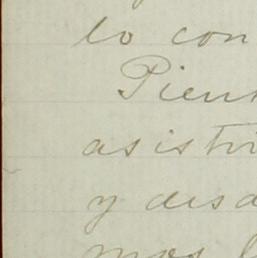 lo con
Piens
asistir
y desa
mos l